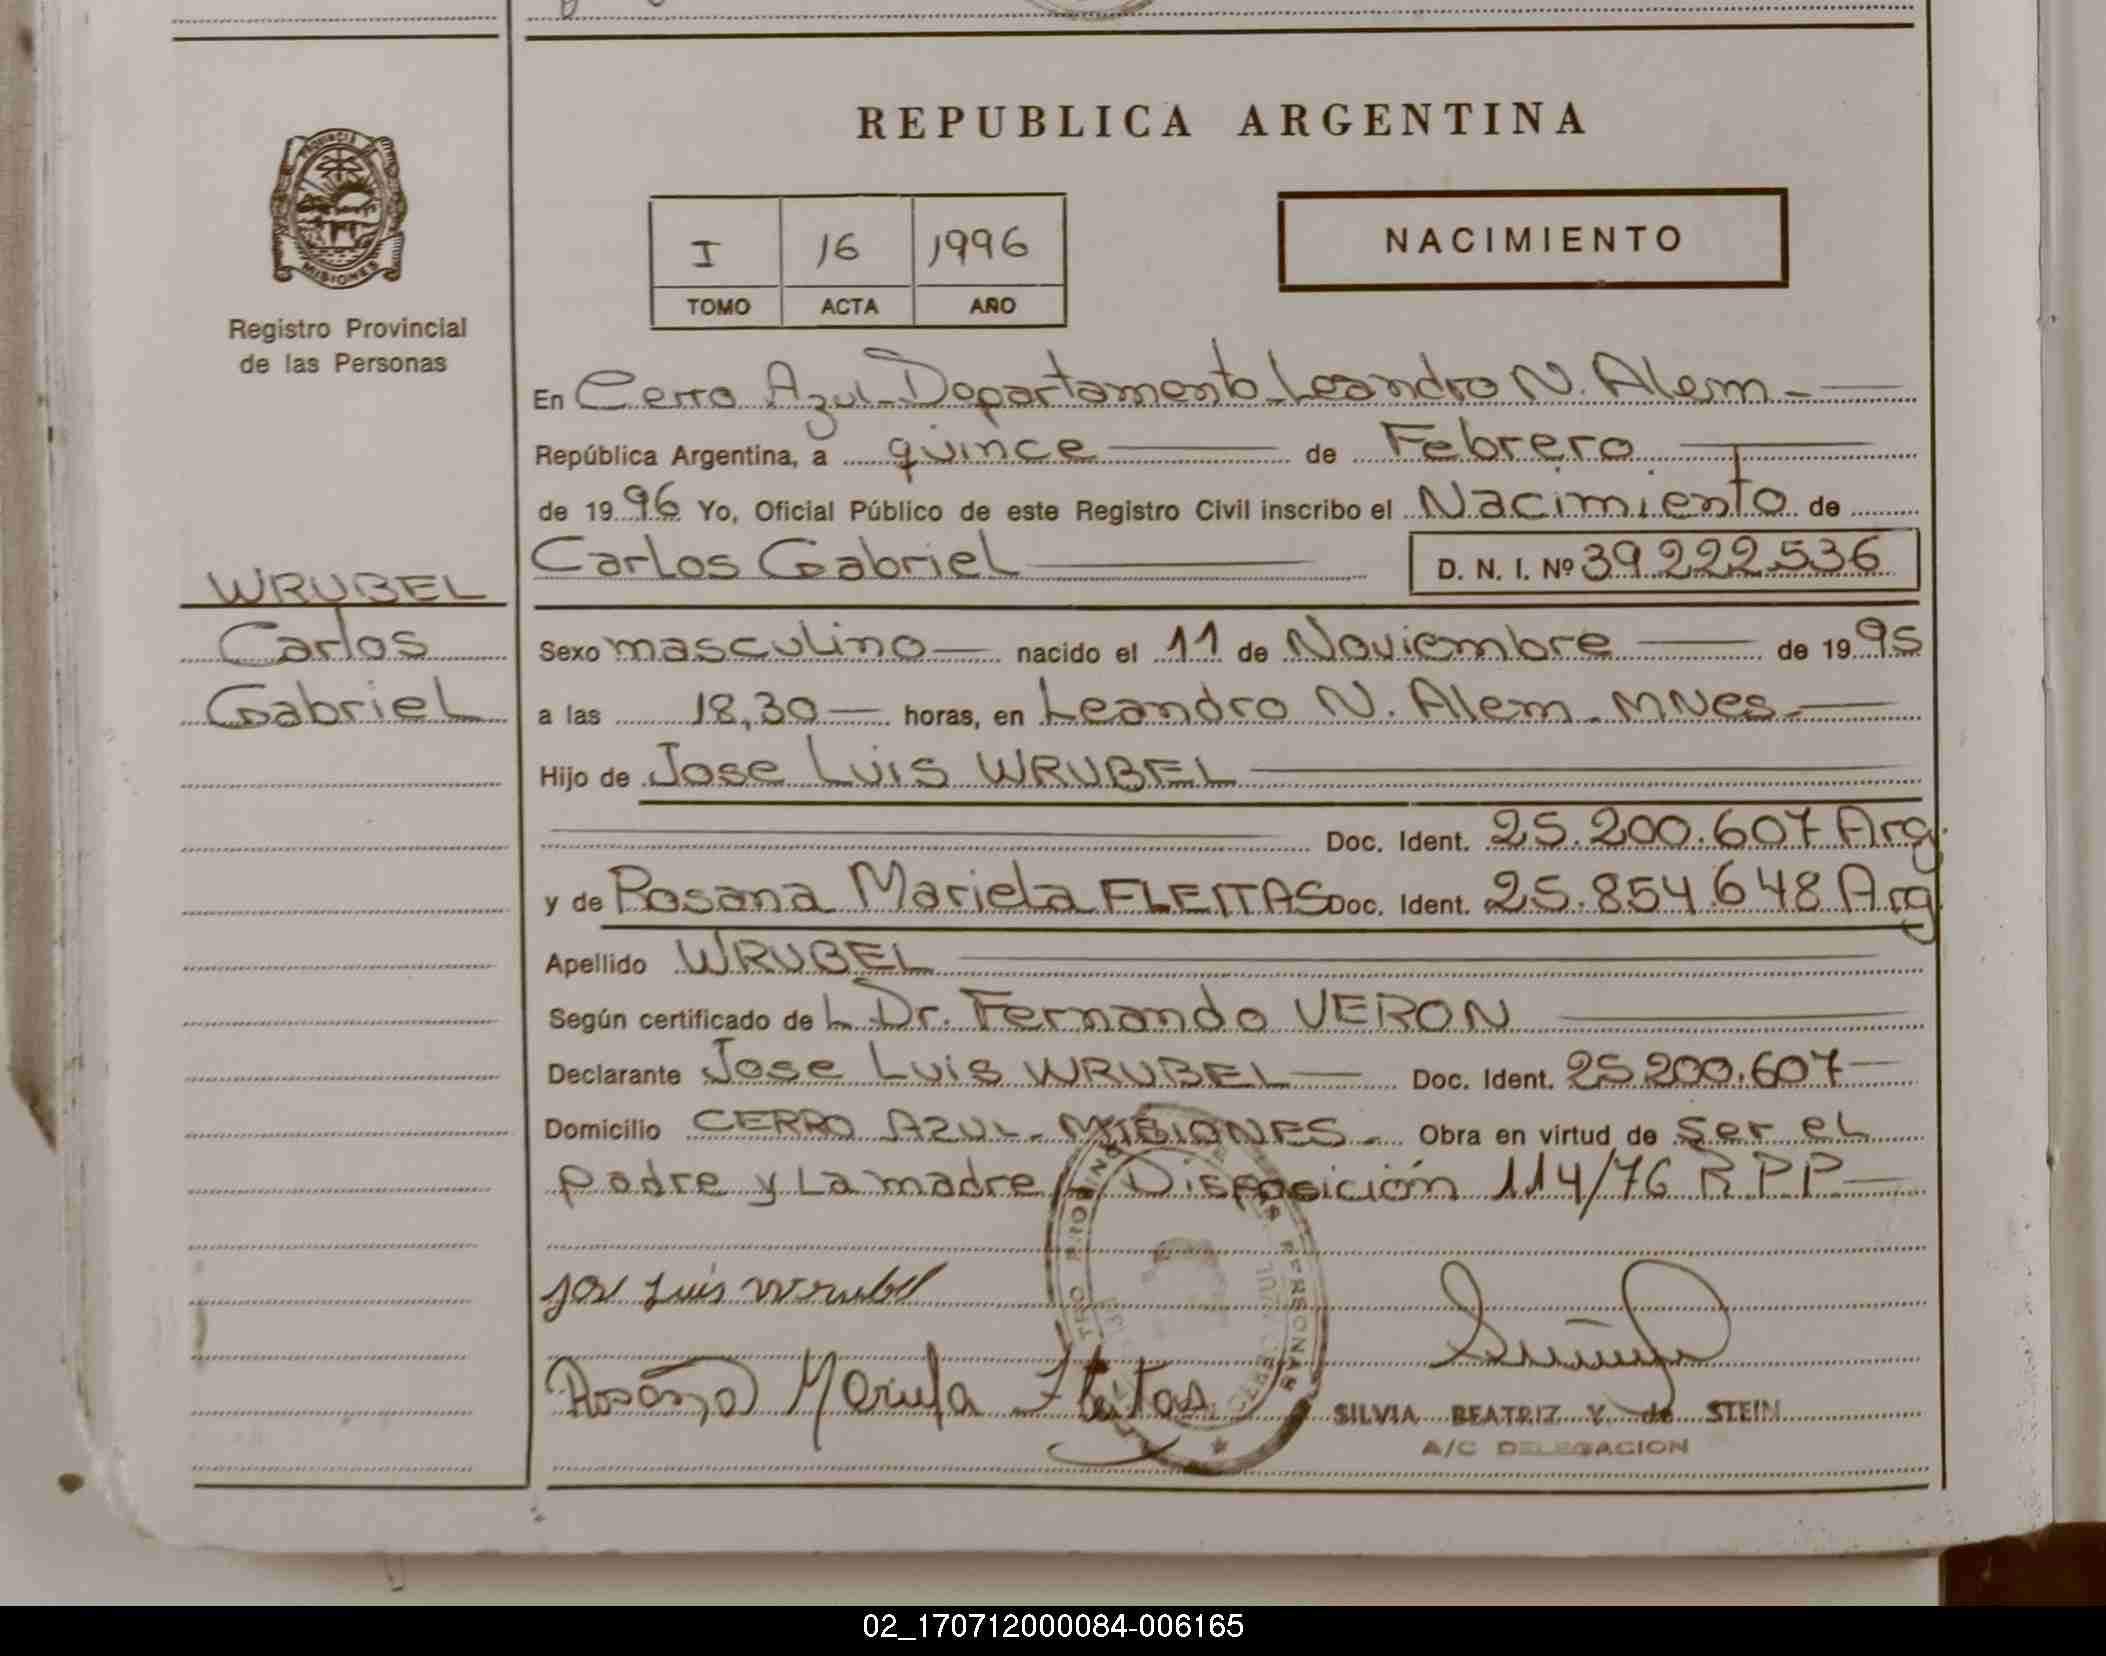 REPUBLICA ARGENTINA
PROVINCIA DE
MISIONES
Registro Provincial
de las Personas
I 16 1996
TOMO ACTA AÑO
NACIMIENTO
En Cerro Azul - Departamento Leandro N. Alem -
República Argentina, a quince de Febrero
de 1996 Yo, Oficial Público de este Registro Civil inscribo el Nacimiento de
Carlos Gabriel D. N. I. Nº 39.222.536
WRUBEL
Carlos
Gabriel
Sexo masculino nacido el 11 de Noviembre de 1995
a las 18,30 horas, en Leandro N. Alem - MNes -
Hijo de Jose Luis WRUBEL
Doc. Ident. 25.200.607 Arg.
y de Rosana Mariela FLEITAS Doc. Ident. 25.854.648 Arg.
Apellido WRUBEL
Según certificado del Dr. Fernando VERON
Declarante Jose Luis WRUBEL Doc. Ident. 25.200.607
Domicilio CERRO AZUL - MISIONES - Obra en virtud de ser el
padre y la madre Disposición 114/76 R P P
Jose Luis Wrubel
Rosana Mariela Fleitas
SILVIA BEATRIZ Y. de STEIN
A/C DELEGACION
02_170712000084-006165